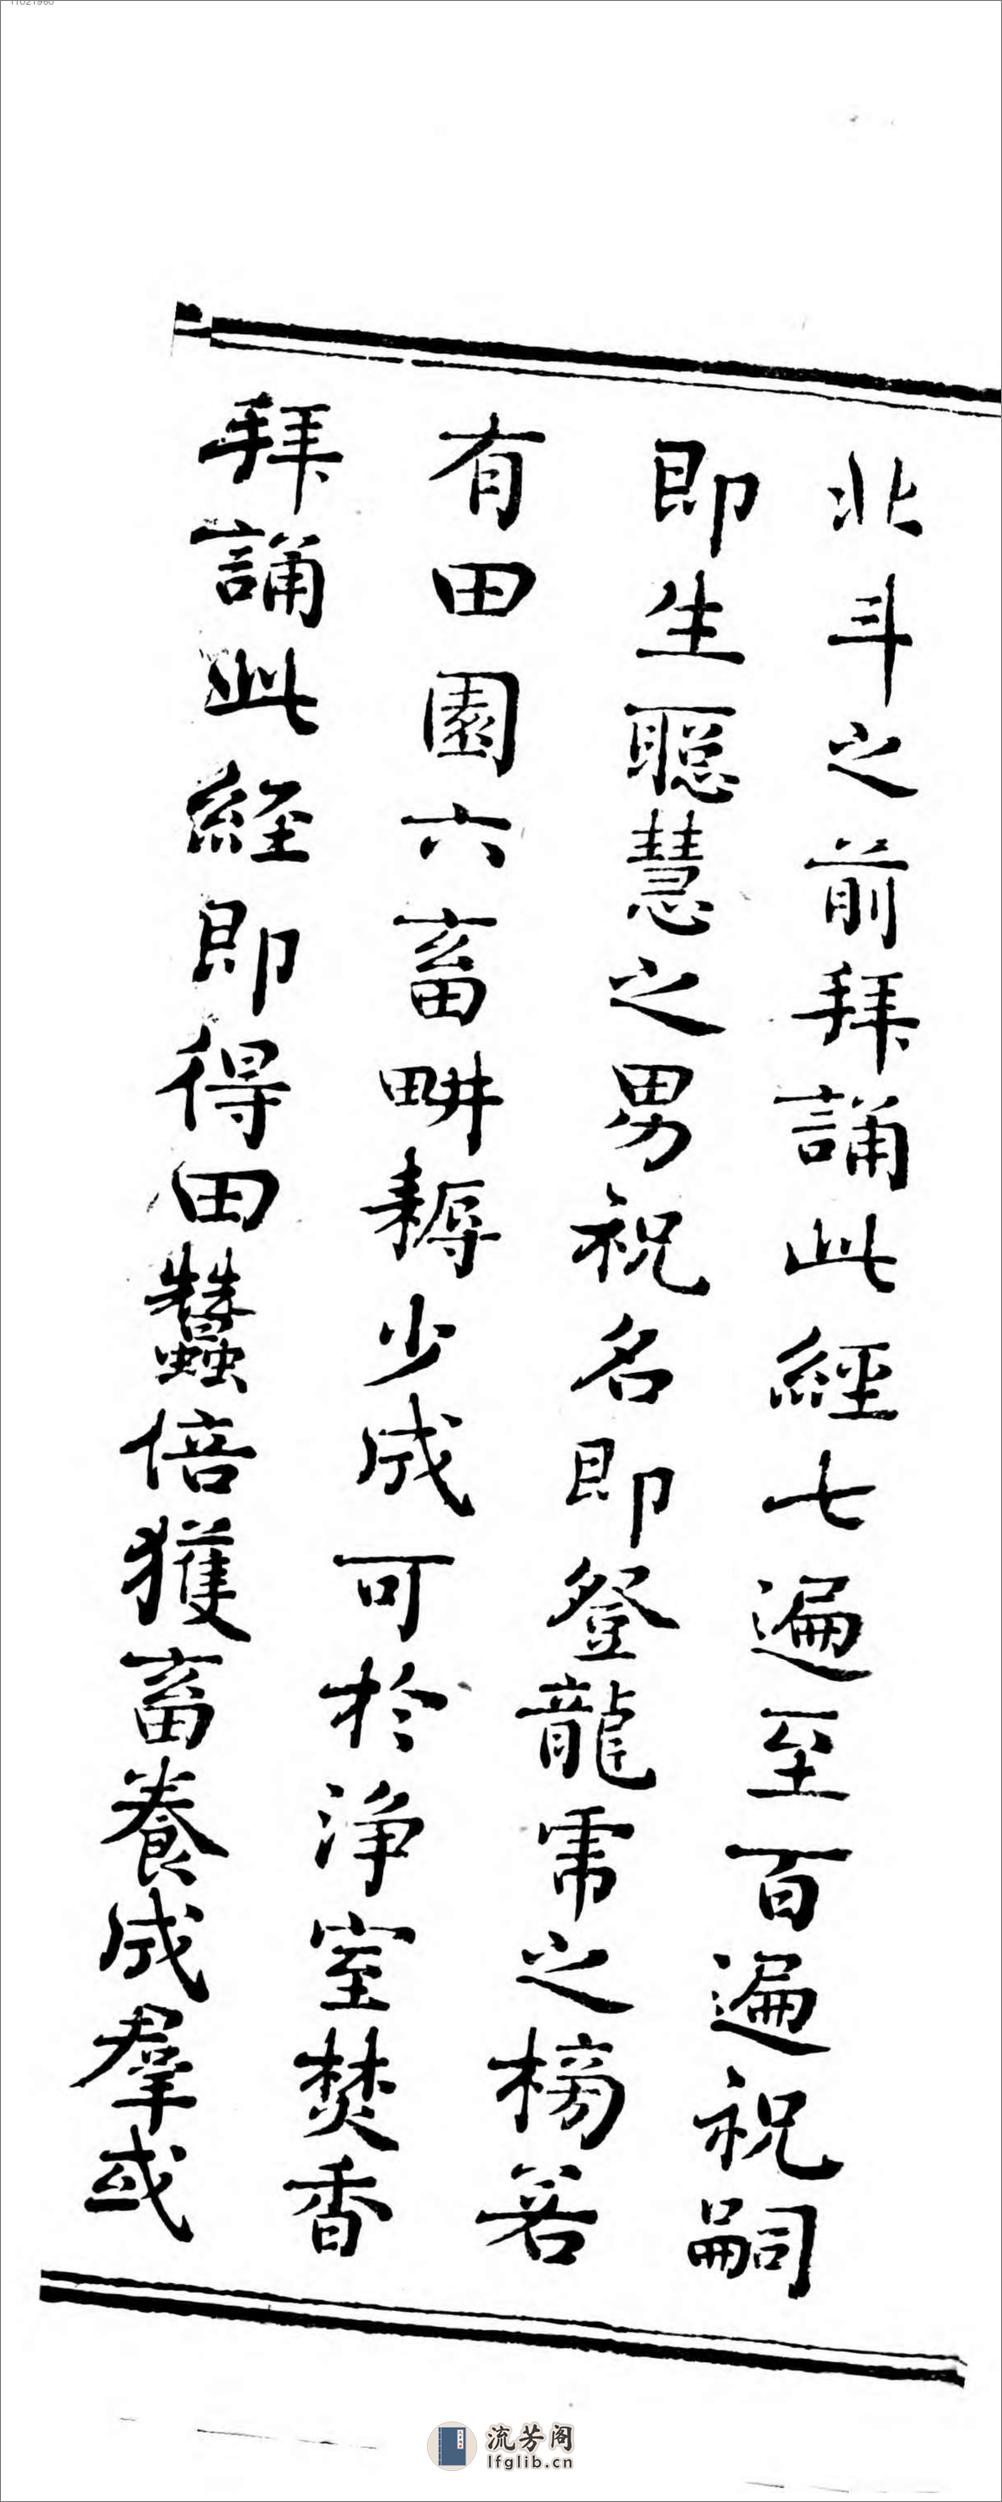 北斗之前拜誦此經七遍至百遍祝嗣
即生聰慧之男祝名即登龍虎之榜若
有田園六畜畊耨少成可於淨室焚香
拜誦此經即得田蠶倍獲畜養成羣或
流芳阁
lfglib.cn